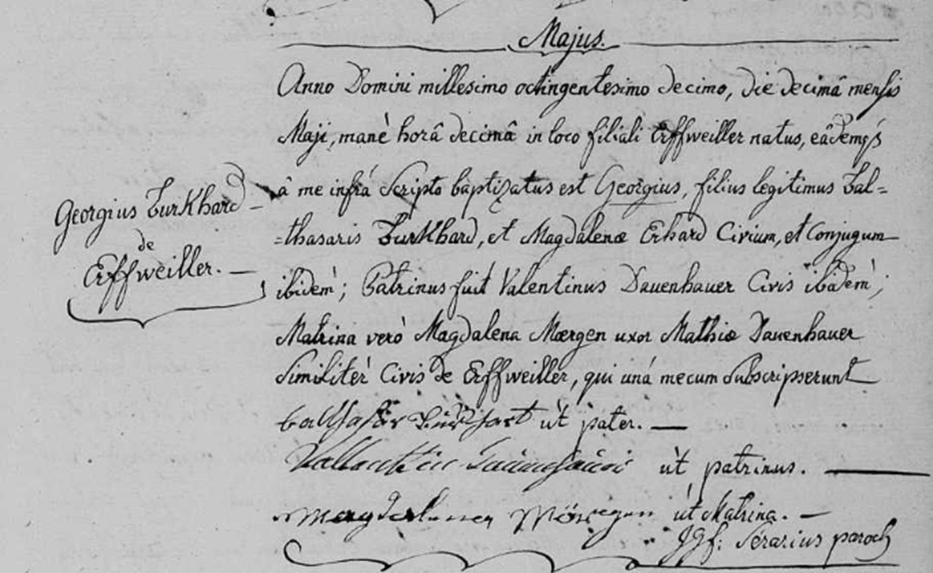 Majus.
Anno Domini millesimo octingentesimo decimo, die decimâ mensis
Maji, manè horâ decimâ in loco filiali Erffweiller natus, eâdemq́s
Georgius Burkhard
â me infrá Scripto baptizatus est Georgius, filius legitimus Bal=
de
=thasaris Burkhard, et Magdalenæ Erhard Civium, et Conjugum
Erffweiller.
ibidèm; Patrinus fuit Valentinus Dauenhauer Civis ibidèm;
Matrina verò Magdalena Mærgen uxor Mathiæ Dauenhauer
Similitèr Civis de Erffweiller, qui unâ mecum Subscripserunt
út pater.
út patrinus.
Magdalena Mörgen út Matrina.
Serarius paroch